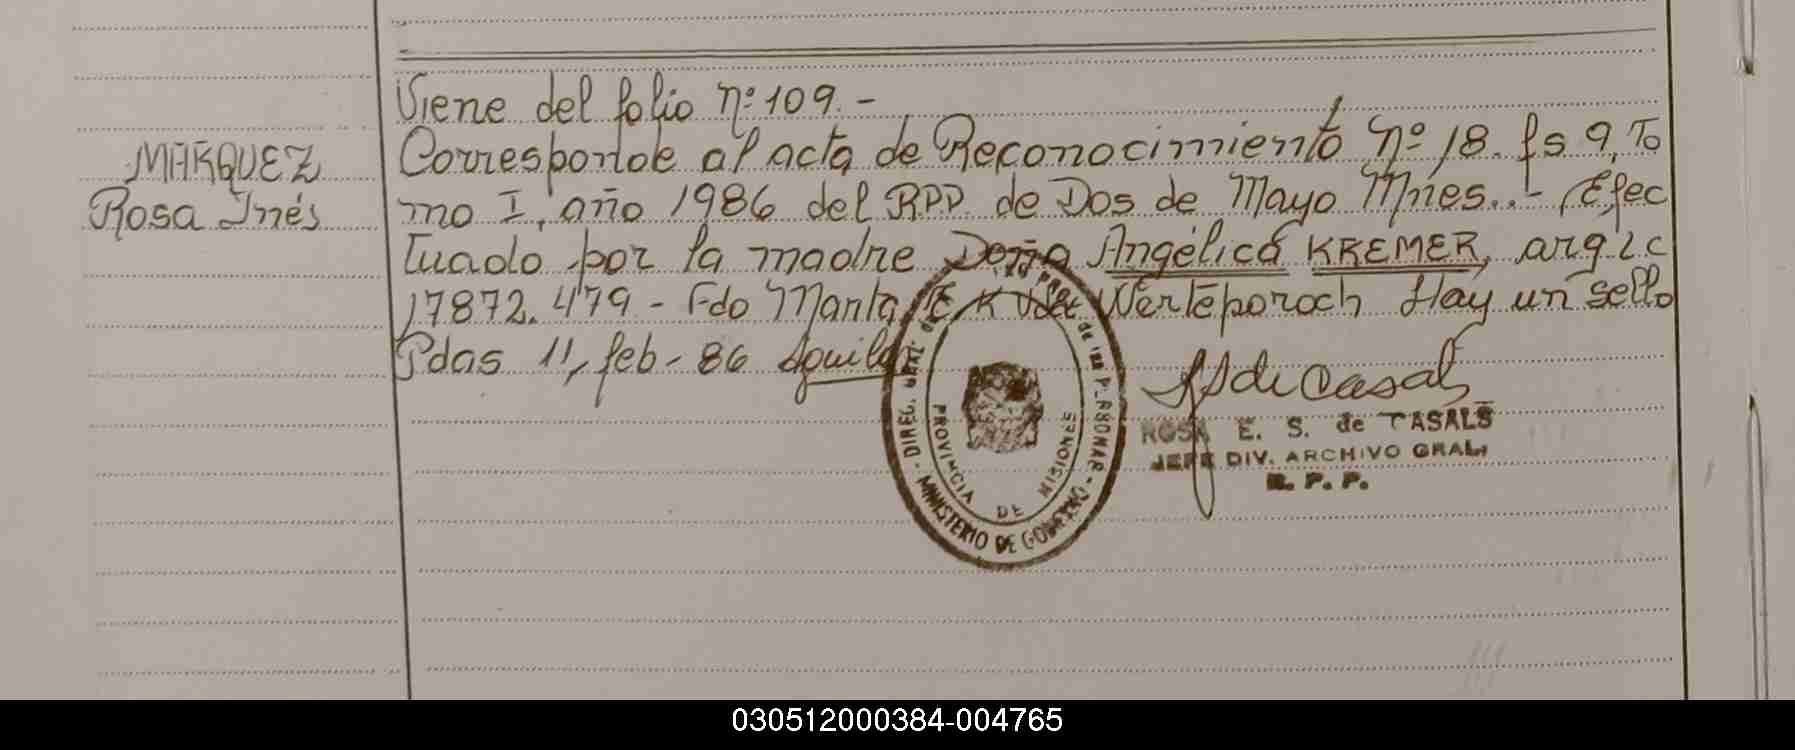 Viene del folio nº 109.-
MARQUEZ
Rosa Inés
Corresponde al acta de Reconocimiento Nº 18. fs 9, To
mo I, año 1986 del RPP. de Dos de Mayo Mnes..- Efec
tuado por la madre Doña Angélica KREMER, arg. LC
17872.479 - Fdo Marta E K de Werteporoch Hay un sello
Pdas 11, feb- 86 Aguila
DIREC. GRAL. de las PERSONAS - MINISTERIO DE GOBIERNO -
PROVINCIA DE MISIONES
de Casals
ROSA E. S. de CASALS
JEFE DIV. ARCHIVO GRAL.
R. P. P.
030512000384-004765